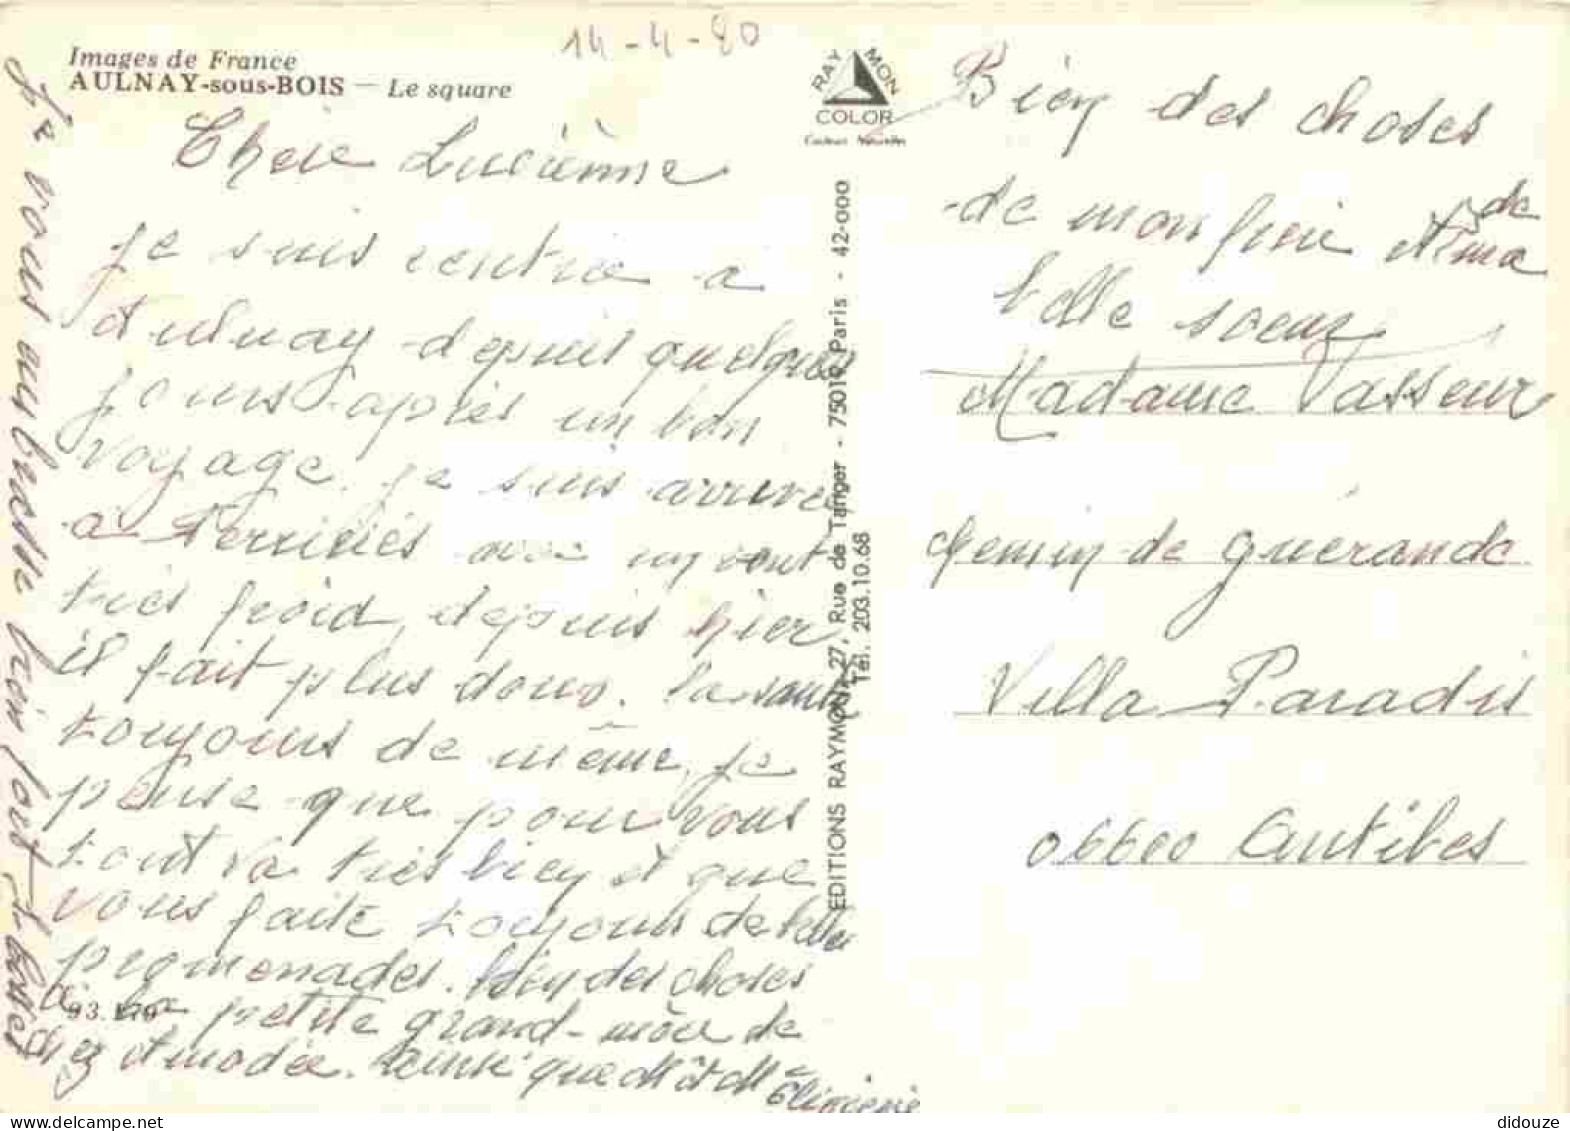 14-4-80
Images de France
AULNAY-sous-BOIS — Le square
RAYMON
COLOR
Couleurs Naturelles
Chère Lucienne
je suis rentrée a
Aulnay depuis quelques
jours après un bon
voyage. je suis arrivée
a Ferrières avec un vent
très froid, depuis hier
il fait plus doux. La santé
toujours de même, je
pense que pour vous
tout va très bien et que
vous faite toujours de belles
promenades. bien des choses
a la petite grand-mère de
93.179
que Mr et Mme
Je vous embrasse bien fort
EDITIONS RAYMOND, 27, Rue de Tanger - 75019 Paris - 42-000
Tél. 203.10.68
Bien des choses
de mon frère et de
ma
belle soeur
Madame Vasseur
chemin de Guérande
Villa Paradis
06600 Antibes
didouze